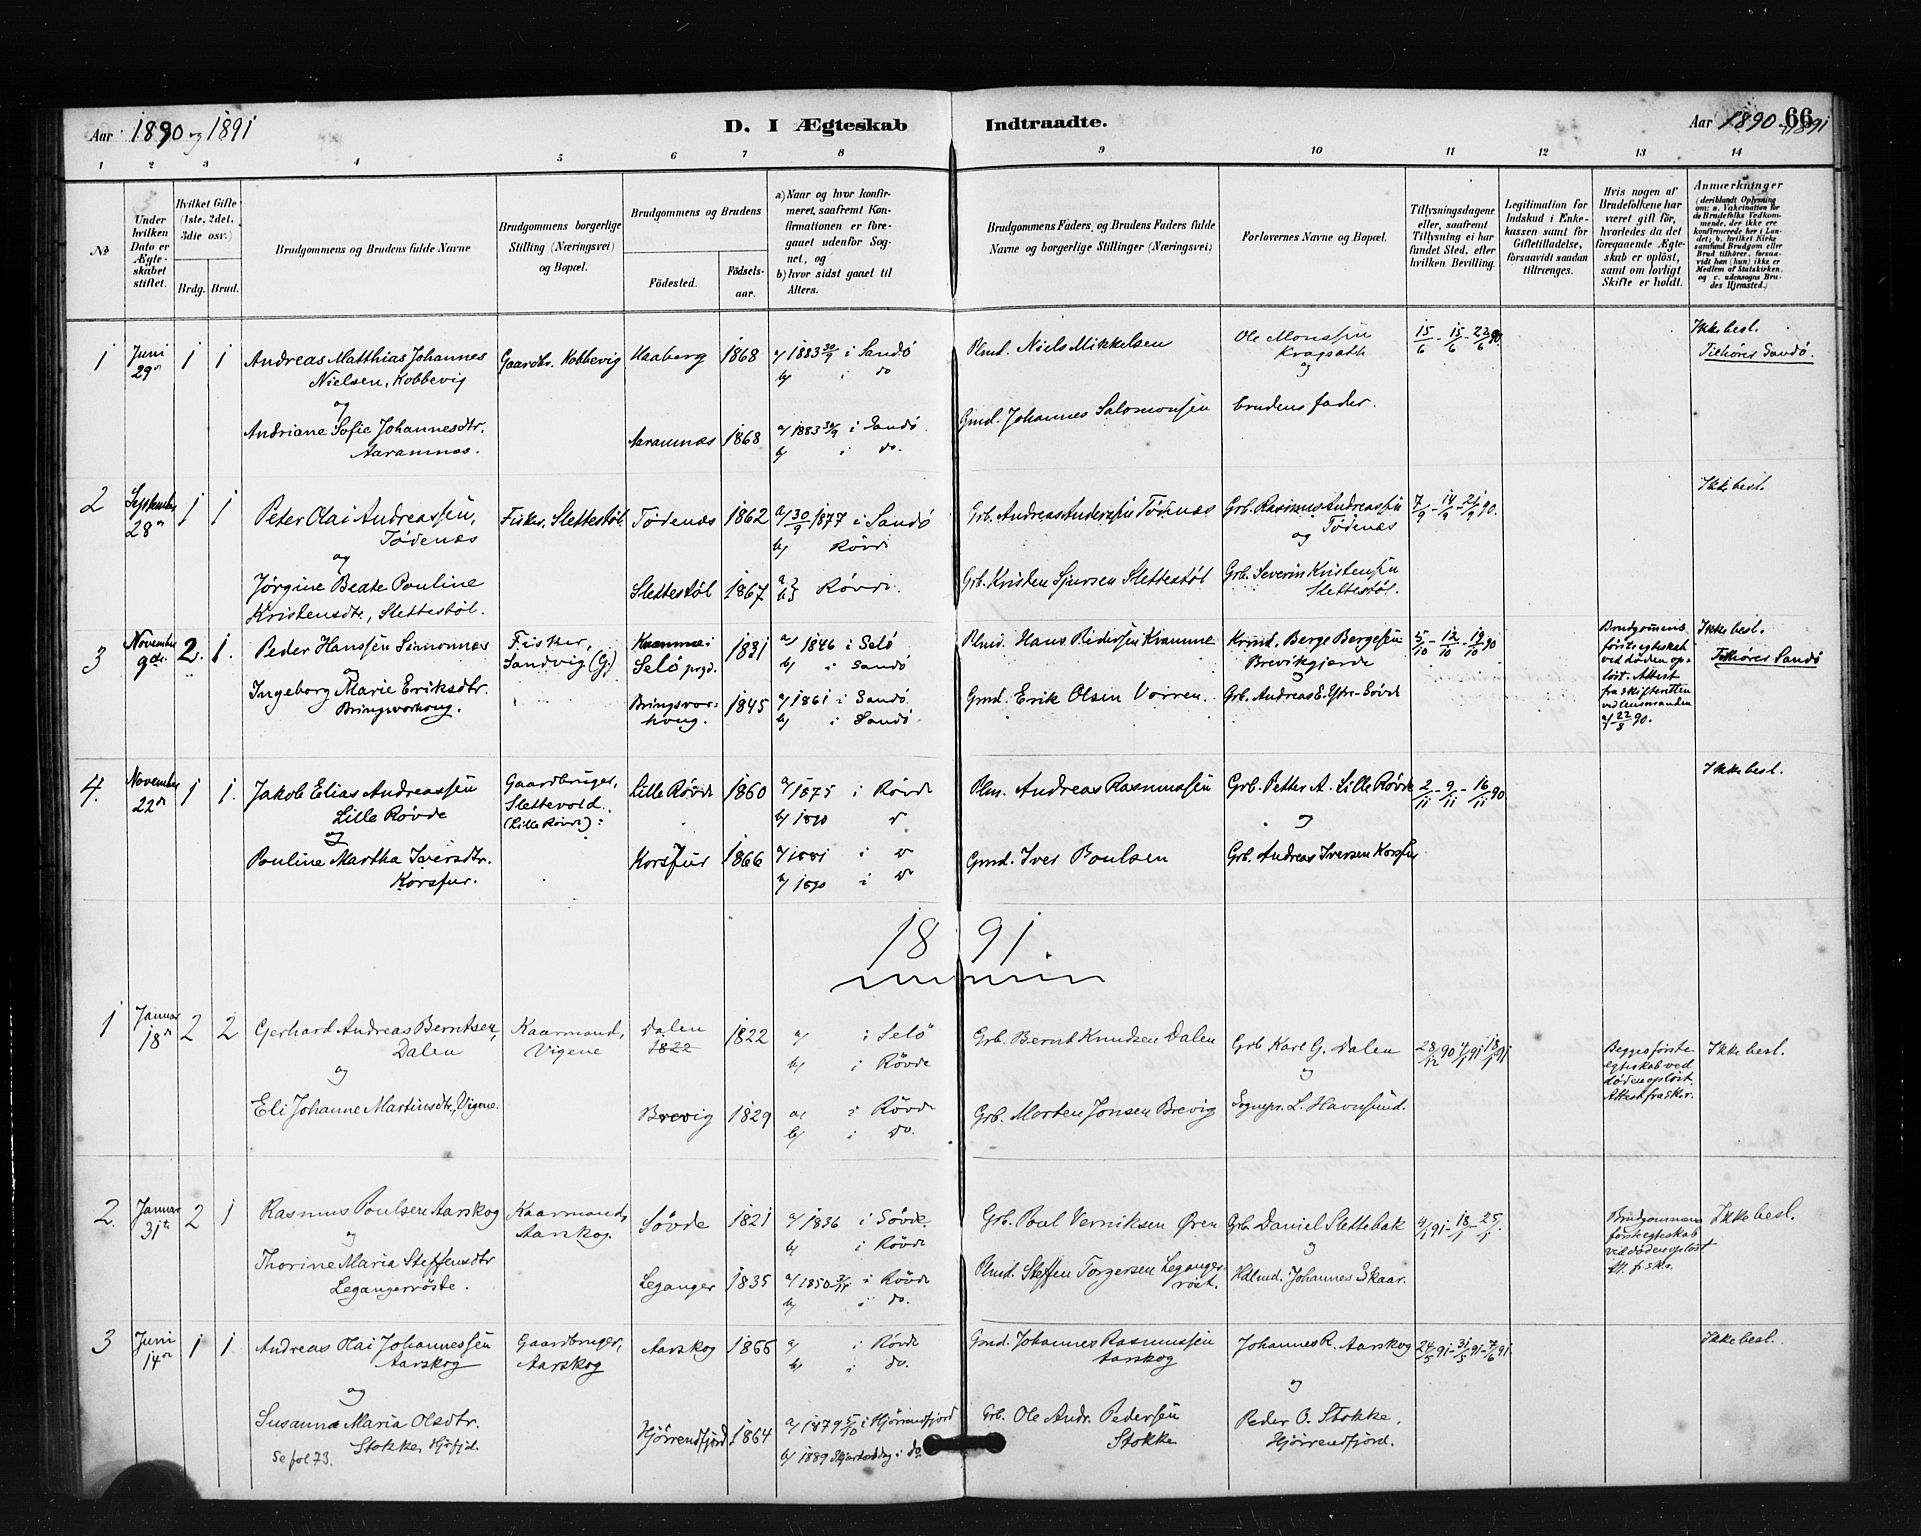 Aar 1890 og 1891
D. I Ægteskab Indtraadte.
Aar 1890 1891
66
1 2 3 4 5 6 7 8 9 10 11 12 13 14
No.
Under hvilken Dato er Ægteskabet stiftet.
Hvilket Gifte (1ste, 2det, 3die osv.)
Brdg. Brud.
Brudgommens og Brudens fulde Navne
Brudgommens borgerlige Stilling (Næringsvei) og Bopæl.
Brudgommens og Brudens
Fødested. Fødselsaar.
a) Naar og hvor konfirmeret, saafremt Konfirmationen er foregaaet udenfor Sognet, og
b) hvor sidst gaaet til Alters.
Brudgommens Faders, og Brudens Faders fulde Navne og borgerlige Stillinger (Næringsvei)
Forlovernes Navne og Bopæl.
Tillysningsdagene eller, saafremt Tillysning ei har fundet Sted, efter hvilken Bevilling.
Legitimation for Indskud i Enkekassen samt for Giftetilladelse, forsaavidt saadan tiltrænges.
Hvis nogen af Brudefolkene har været gift før, hvorledes da det foregaaende Ægteskab er opløst, samt om lovligt Skifte er holdt.
Anmærkninger (deriblandt Oplysning om: a. Vakcination for de Brudefolks Vedkommende, der ikke ere konfirmerede her i Landet; b. hvilket Kirkesamfund Brudgom eller Brud tilhører, forsaavidt han (hun) ikke er Medlem af Statskirken, og c. udensogns Brudes Hjemsted.)
1 Juni 29de 1 1 Andreas Matthias Johannes Nielsen, Kobbevig Gaardbr. Kobbevig Haaberg 1868 a/ 1883 30/9 i Sandö Plmd. Niels Mikkelsen Ole Monssen Kragsæth 15/6 - 15/6 - 22/6 90 Ikke besl.
b/ i do og Tilhører Sandö.
og
Andriane Sofie Johannesdtr. Aaramnæs. Aaramnæs 1868 a/ 1883 30/9 i Sandö Gmd. Johannes Salomonsen brudens fader.
b/ i do.
2 September 28de 1 1 Peter Olai Andreassen, Tödenæs Fisker, Slettestöl. Tödenæs 1862 a/ 30/9 1877 i Sandö Grb. Andreas Andersen Tödenæs Grb. Rasmus Andreassen Tödenæs 7/9 - 14/9 - 21/9 90. Ikke besl.
b/ Rövde og
og
Jørgine Beate Pouline Kristensdtr., Slettestöl. Slettestöl 1867 a b} Røvde. Grb. Kristen Sjursen Slettestöl Grb. Severin Kristensen Slettestöl.
3 November 9de. 2. 1. Peder Hanssen Simonnæs Fisker, Sandvig (G.) Kramme i Selö prgd. 1831 a/ 1846 i Selö Plmd. Hans Pedersen Kramme Krmd. Berge Bergesen Brevikgjerde 5/10 - 12/10 - 19/10 90 Brudgommens første egteskab ved døden opløst. Attest fra skifteretten ved lensmanden a/ 22/8 90. Ikke besl.
b/ i Sandö og Tilhører Sandö
og
Ingeborg Marie Eriksdtr. Bringsvorhoug. Bringsvorhoug. 1845 a/ 1861 i Sandö Gmd. Erik Olsen Vorren. Grb. Andreas E. Ytre-Søvde
b/ i Sandö
4. November 22de 1 1. Jakob Elias Andreassen Lille Røvde Gaardbruger, Slettevold. (Lille Røvde) Lille Røvde 1860 a/ 1875 i Røvde Plm. Andreas Rasmussen Grb. Petter A. Lille Røvde 2/11 - 9/11 - 16/11 90 Ikke besl.
b/ 1890 do og
og
Pouline Martha Iversdtr. Korsfur. Korsfur 1866 a/ 1881 i do Gmd. Iver Poulsen Grb. Andreas Iversen Korsfur
b/ 1890 i do
1891.
1 Januar 18de 2 2 Gerhard Andreas Berntsen, Dalen Kaarmand, Vigene Dalen 1822 1822 a/ i Selö Grb. Bernt Knudsen Dalen Grb Karl G. Dalen 28/12 90 4/1 91 18/1 91 Begges første egteskab ved døden opløst. Attest fra skr. Ikke besl.
b/ i Røvde og
og
Eli Johanne Martinsdtr., Vigene. Brevig 1829 a/ i Røvde Grb. Morten Jonsen Brevig Sognepr. L. Havnsund.
b/ i do.
2. Januar 31te 2 1 Rasmus Poulsen Aarskog Kaarmand, Aarskog. Søvde 1821 a/ 1836 i Søvde. Grb. Poul Verniksen Ören Grb. Daniel Slettebak 4/1 91 - 18/1 - 25/1. Brudgommens første egteskab ved døden opløst Att. f. skr. Ikke besl.
b/ i Røvde og
og
Thorine Maria Steffensdtr Legangerröste. Leganger 1835 a/ 1850 i Røvde Plmd. Steffen Torgersen Legangerröst. Hdlmd. Johannes Skaar.
b/ i do.
3 Juni 14de 1 1 Andreas Olai Johannessen Aarskog Gaardbruger, Aarskog Aarskog 1866 a/ i Røvde Gmd. Johannes Rasmussen Aarskog Johannes R. Aarskog 24/5 91 - 31/5 91 - 7/6 91 Ikke besl.
b/ i do.
og og
Susanna Maria Olsdtr. Stokke, Hjørfjd. Hjørrendfjord 1864 a/ 1879 5/10 i Hjørrendfjord Grb. Ole Andr. Pedersen Stokke Peder O. Stokke, Hjørrendfjord.
Se fol 73. b/ 1889 i do